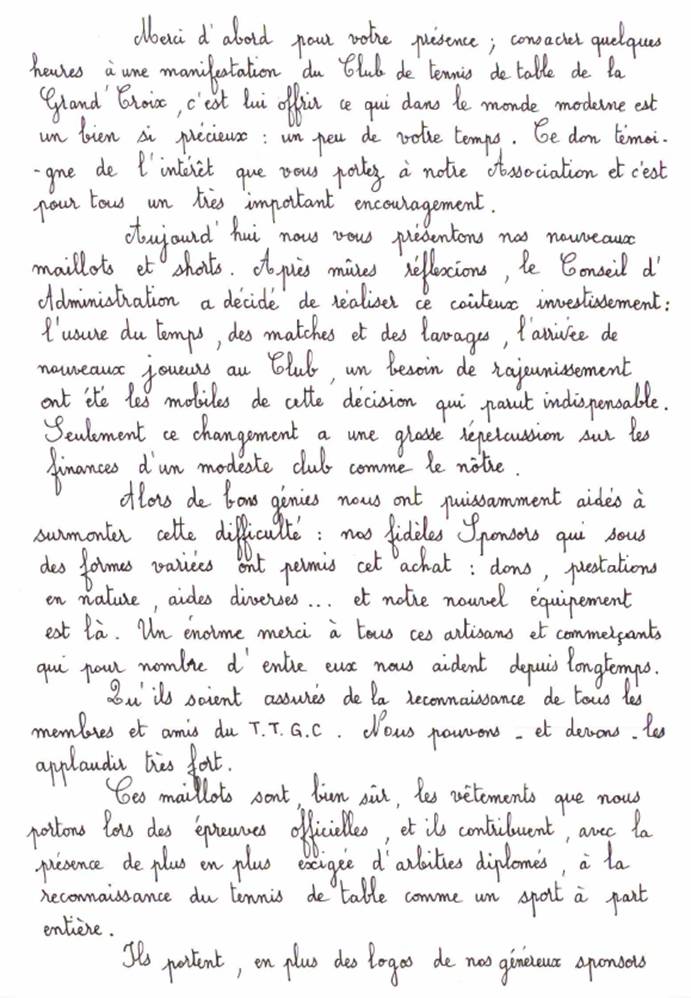 Merci d'abord pour votre présence ; consacrer quelques
heures à une manifestation du Club de tennis de table de la
Grand'Croix, c'est lui offrir ce qui dans le monde moderne est
un bien si précieux : un peu de votre temps. Ce don témoi-
-gne de l'intérêt que vous portez à notre Association et c'est
pour tous un très important encouragement.
Aujourd'hui nous vous présentons nos nouveaux
maillots et shorts. Après mûres réflexions, le Conseil d'
Administration a décidé de réaliser ce coûteux investissement :
l'usure du temps, des matches et des lavages, l'arrivée de
nouveaux joueurs au Club, un besoin de rajeunissement
ont été les mobiles de cette décision qui parut indispensable.
Seulement ce changement a une grosse répercussion sur les
finances d'un modeste club comme le nôtre.
Alors de bons génies nous ont puissamment aidés à
surmonter cette difficulté : nos fidèles Sponsors qui sous
des formes variées ont permis cet achat : dons, prestations
en nature, aides diverses... et notre nouvel équipement
est là. Un énorme merci à tous ces artisans et commerçants
qui pour nombre d'entre eux nous aident depuis longtemps.
Qu'ils soient assurés de la reconnaissance de tous les
membres et amis du T.T.G.C. Nous pouvons - et devons - les
applaudir très fort.
Ces maillots sont, bien sûr, les vêtements que nous
portons lors des épreuves officielles, et ils contribuent, avec la
présence de plus en plus exigée d'arbitres diplomés, à la
reconnaissance du tennis de table comme un sport à part
entière.
Ils portent, en plus des logos de nos généreux sponsors